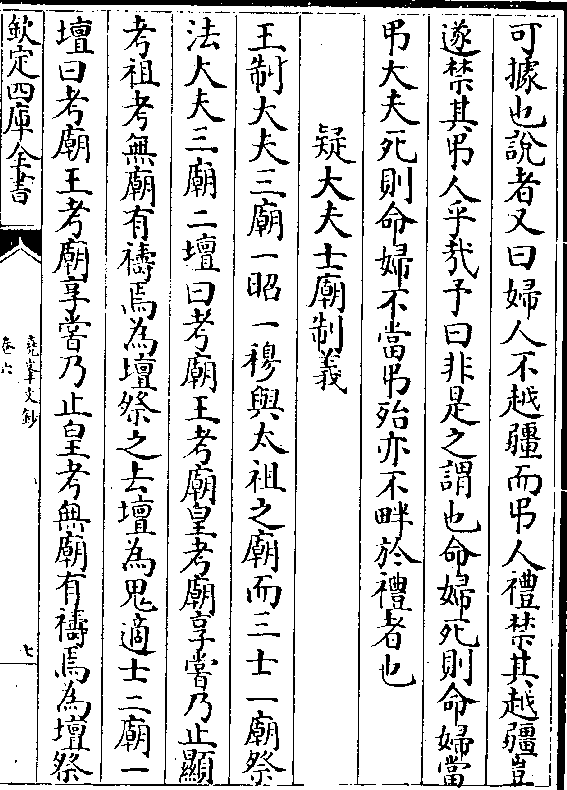 可據也說者又曰婦人不越疆而弔人禮禁其越疆豈
遂禁其弔人乎哉予曰非是之謂也命婦死則命婦當
弔大夫死則命婦不當弔殆亦不畔於禮者也
疑大夫士廟制義
王制大夫三廟一昭一穆與太祖之廟而三士一廟祭
法大夫三廟二壇曰考廟王考廟皇考廟享嘗乃止顯
考祖考無廟有禱焉為壇祭之去壇為鬼適士二廟一
壇曰考廟王考廟享嘗乃止皇考無廟有禱焉為壇祭
欽定四庫全書
堯峯文鈔
卷六
七